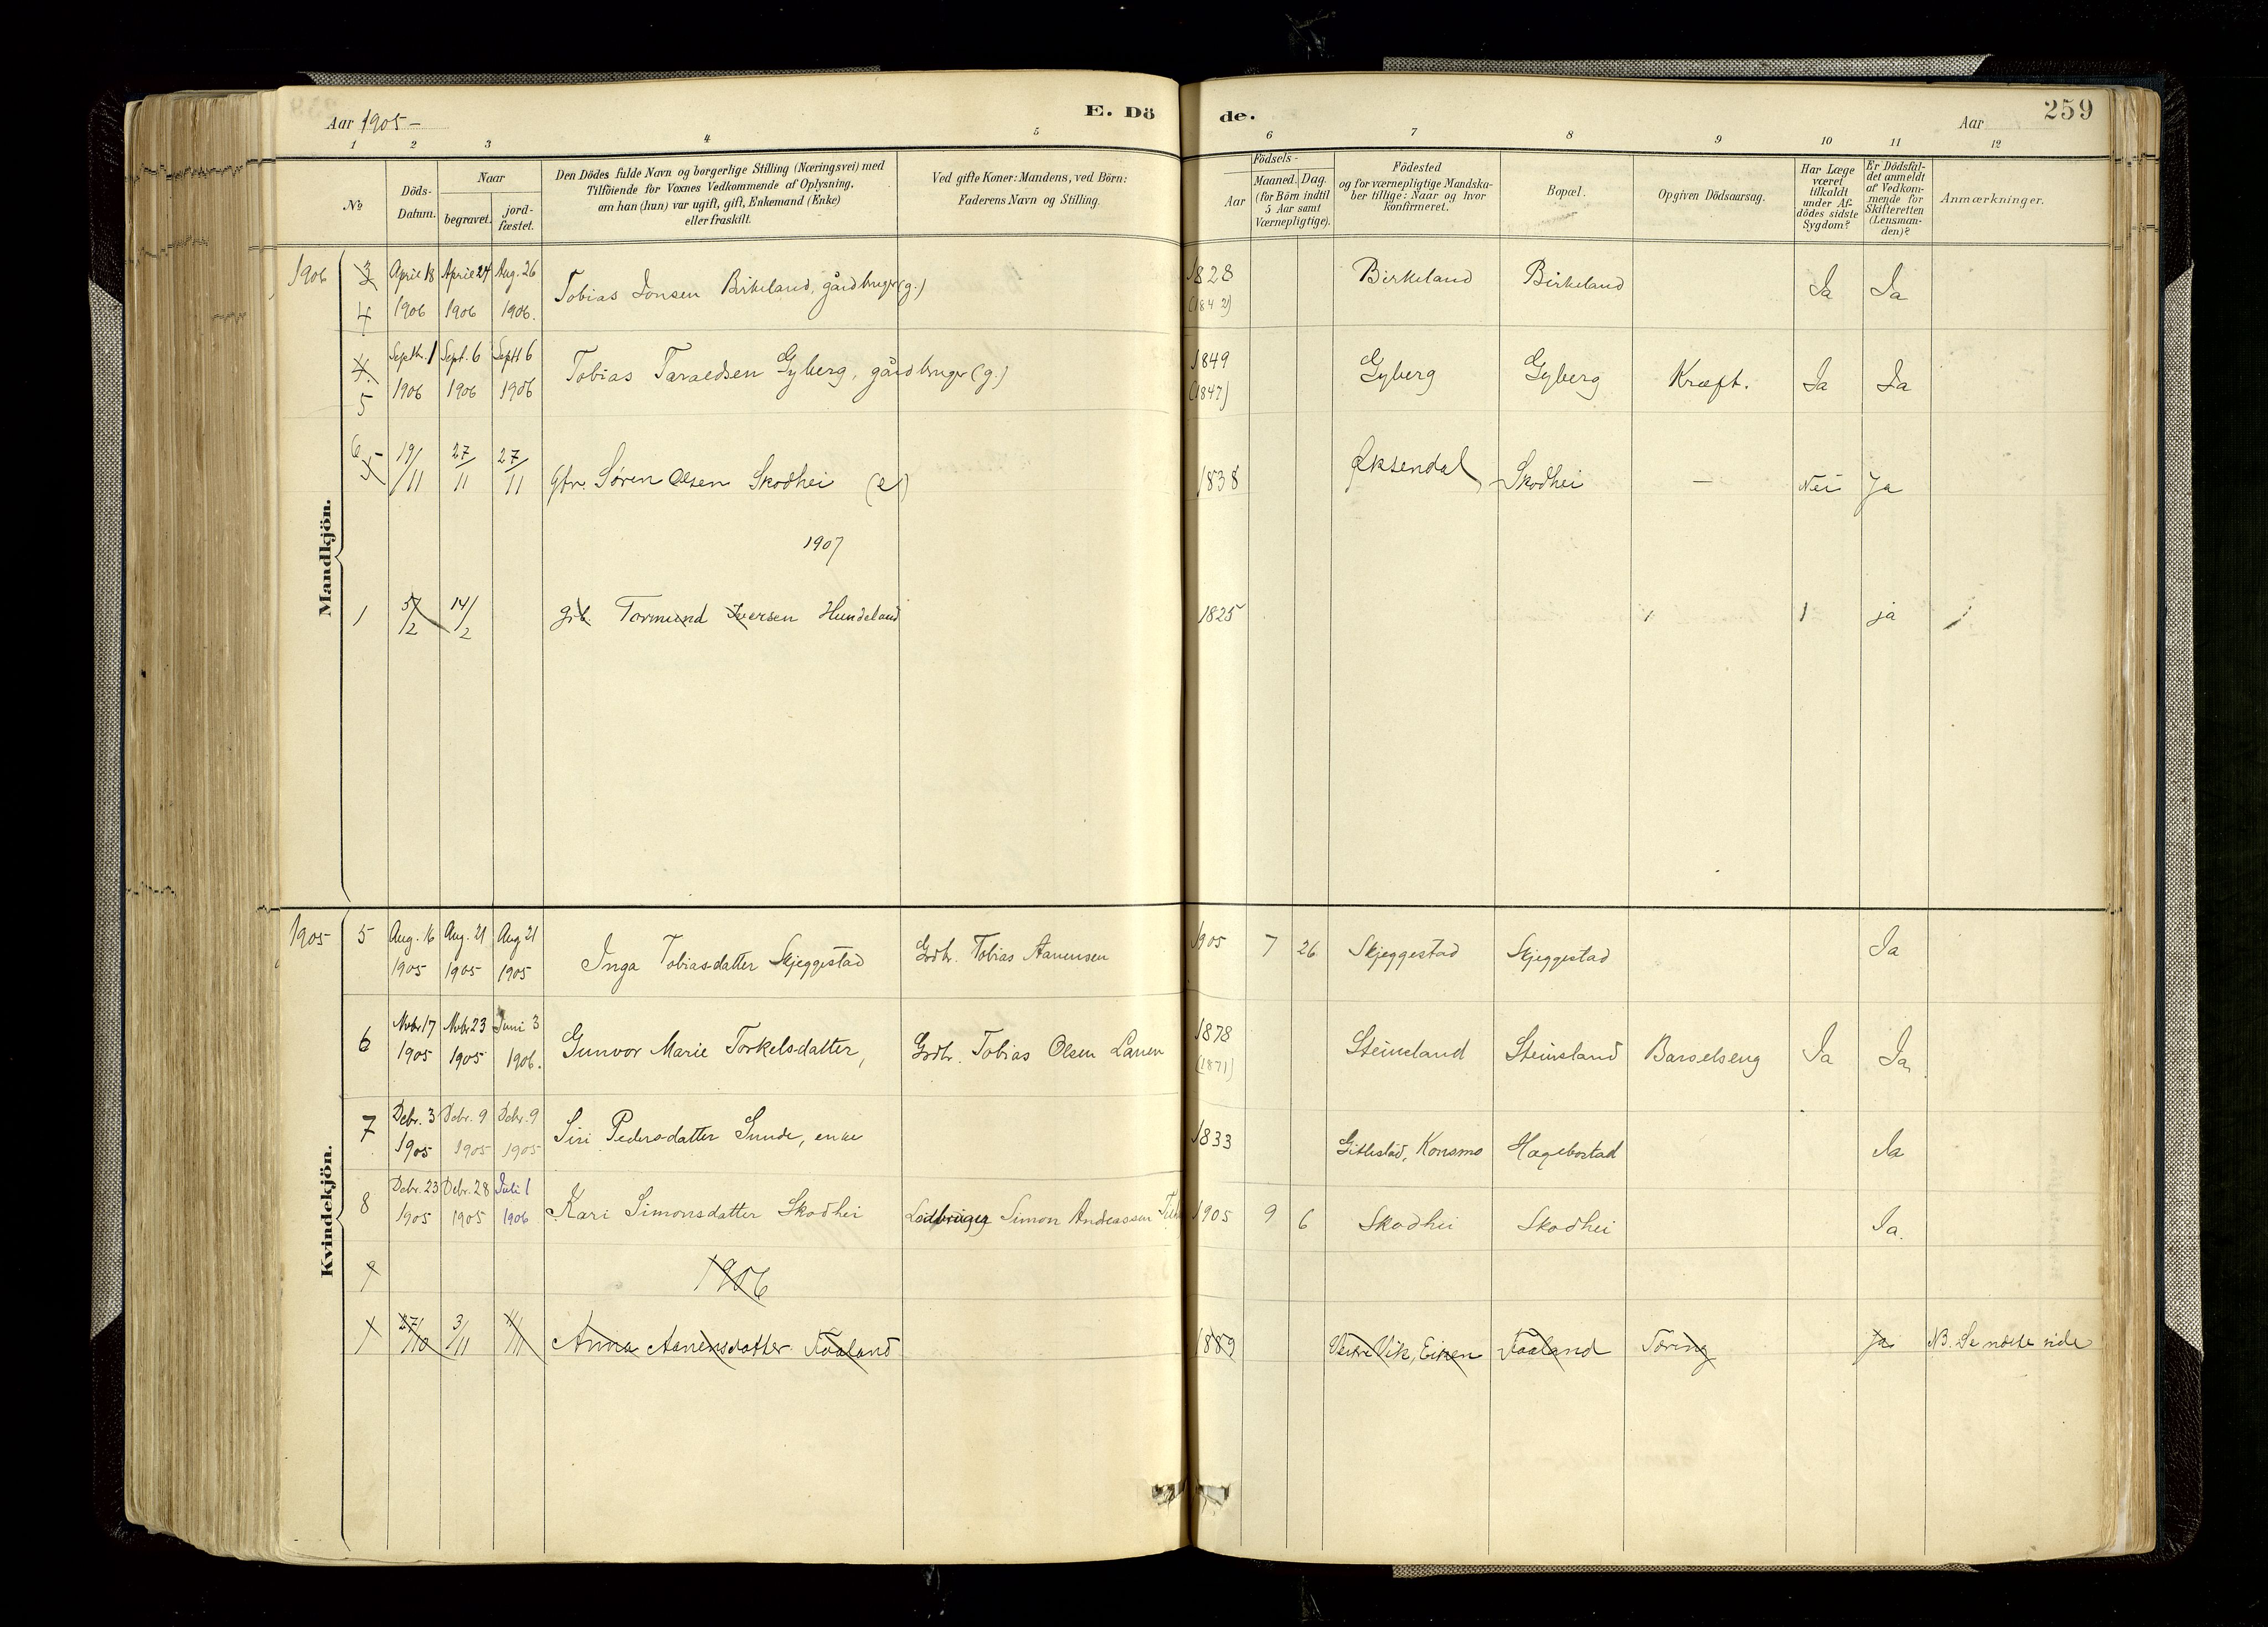 Aar 1905 –
E. Dö
de.
Aar
259
1 2 3 4 5 6 7 8 9 10 11 12
No
Döds-
Datum.
Naar
begravet.
jord-
fæstet.
Den Dödes fulde Navn og borgerlige Stilling (Næringsvei) med
Tilföiende for Voxnes Vedkommende af Oplysning.
om han (hun) var ugift, gift, Enkemand (Enke)
eller fraskilt.
Ved gifte Koner: Mandens, ved Börn:
Faderens Navn og Stilling.
Födsels-
Aar
Maaned. Dag.
(for Börn indtil
5 Aar samt
Værnepligtige).
Födested
og for værnepligtige Mandska-
ber tillige: Naar og hvor
konfirmeret.
Bopæl.
Opgiven Dödsaarsag.
Har Læge
været
tilkaldt
under Af-
dödes sidste
Sygdom?
Er Dödsfal-
det anmeldt
af Vedkom-
mende for
Skifteretten
(Lensman-
den)?
Anmærkninger.
Mandkjön.
1906 3 April 18 April 24 Aug. 26
4 1906 1906 1906.
Tobias Jonsen Birkeland, gårdbruger (g.) 1828 Birkeland Birkeland Ja Ja
(1842)
4. Septbr. 1 Sept. 6 Sept 6
5 1906 1906 1906
Tobias Taraldsen Gyberg, gårdbruger (g.) 1849 Gyberg Gyberg Kræft. Ja Ja
(1847)
6 5 19/11 27/11 27/11 Gbr. Søren Olsen Skodhei (e) 1838 Øksendal Skodhei – Nei Ja
1907
1 5/2 14/2 grb. Tormund Iversen Hundeland 1825 ja
Kvindekjön.
1905 5 Aug. 16 Aug. 21 Aug 21
1905 1905 1905
Inga Tobiasdatter Skjeggestad Grdbr. Tobias Aanensen 1905 7 26 Skjeggestad Skjeggestad Ja
6 Nvbr 17 Nvbr 23 Juni 3
1905 1905 1906.
Gunvor Marie Torkelsdatter, Grdbr. Tobias Olsen Lauen 1878 Steinsland Steinsland Barselseng Ja Ja
(1871)
7 Debr. 3 Debr. 9 Debr. 9
1905 1905 1905
Siri Pedersdatter Sunde, enke 1833 Gitlestad, Konsmo Hægebostad Ja
8 Debr. 23 Debr. 28 Juli 1
1905 1905 1906
Kari Simonsdatter Skodhei Simon Andreassen 1905 9 6 Skodhei Skodhei Ja.
9 1906
1 27/10 3/11 Anna Aanensdatter Faaland 1889 Vik, Eiken Faaland Tæring Ja NB. Se næste side